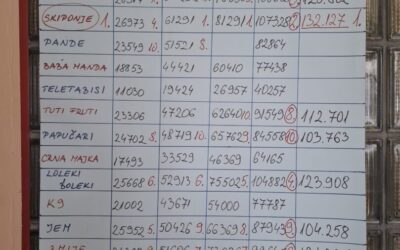 SKIPONJE 1. 26973 4. 61291 1. 81291 1. 107328 2. 132.127 1.
PANDE 23549 10. 51521 8. 82864
BABA MANDA 18853 44421 60410 77438
TELETABISI 11030 19424 26957 40257
TUTI FRUTI 23306 47206 62640 10. 91549 8. 112.701
PAPUČARI 24702 8. 48719 10. 65762 9. 84558 10. 103.763
CRNA MAJKA 17493 33529 46369 64165
LOLEKI BOLEKI 25668 6. 52913 6. 75502 5. 104882 4. 123.908
K9 21002 43671 54000 77787
JEM 25952 5. 50426 9. 66368 8. 87943 9. 104.258